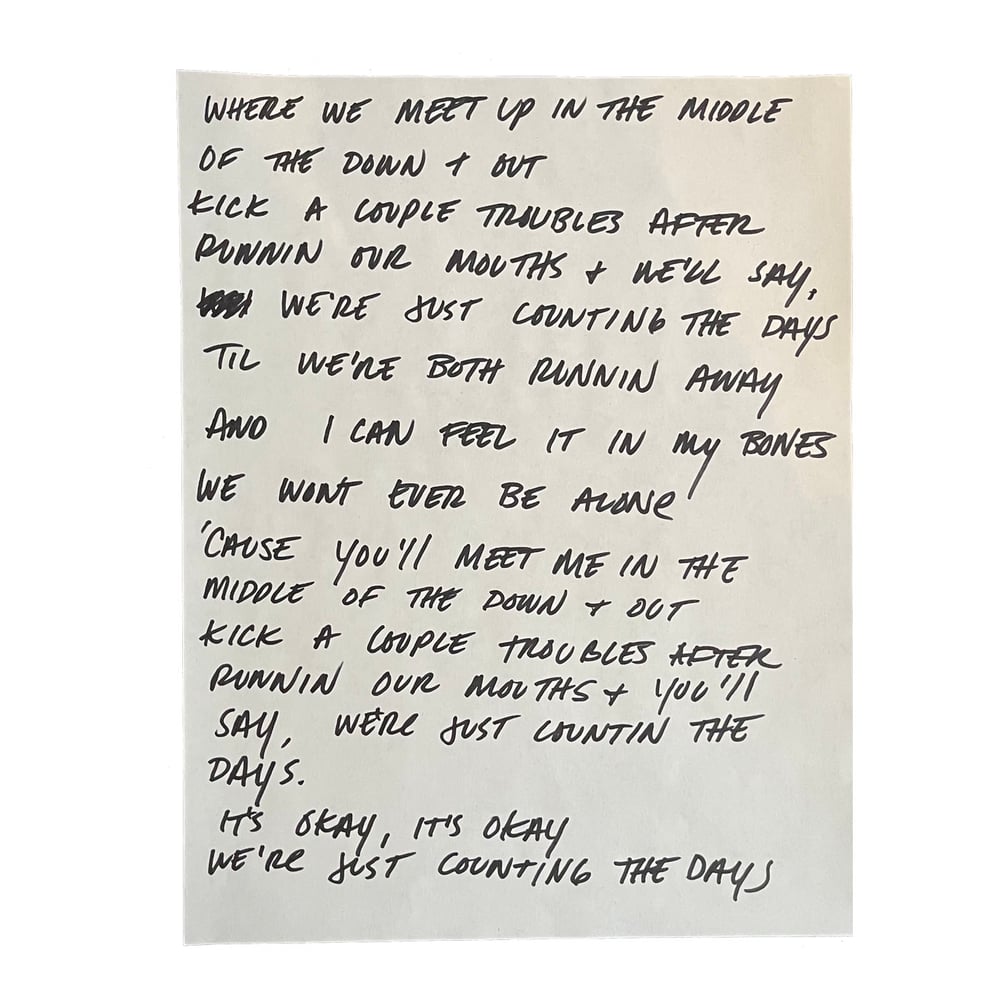 WHERE WE MEET UP IN THE MIDDLE
OF THE DOWN + OUT
KICK A COUPLE TROUBLES AFTER
RUNNIN OUR MOUTHS + WE'LL SAY,
WE'RE JUST COUNTING THE DAYS
TIL WE'RE BOTH RUNNIN AWAY
AND I CAN FEEL IT IN My BONES
WE WONT EVER BE ALONe
'CAUSE YOU'll MEET ME IN THE
MIDDLE OF THE DOWN + OUT
KICK A COUPLE TROUBLES AFTER
RUNNIN OUR MOUTHS + YOU'll
SAY, WE'Re JUST COUNTIN THE
DAYS.
IT'S OKAY, IT'S OKAY
WE'Re JUST COUNTING THE DAYS